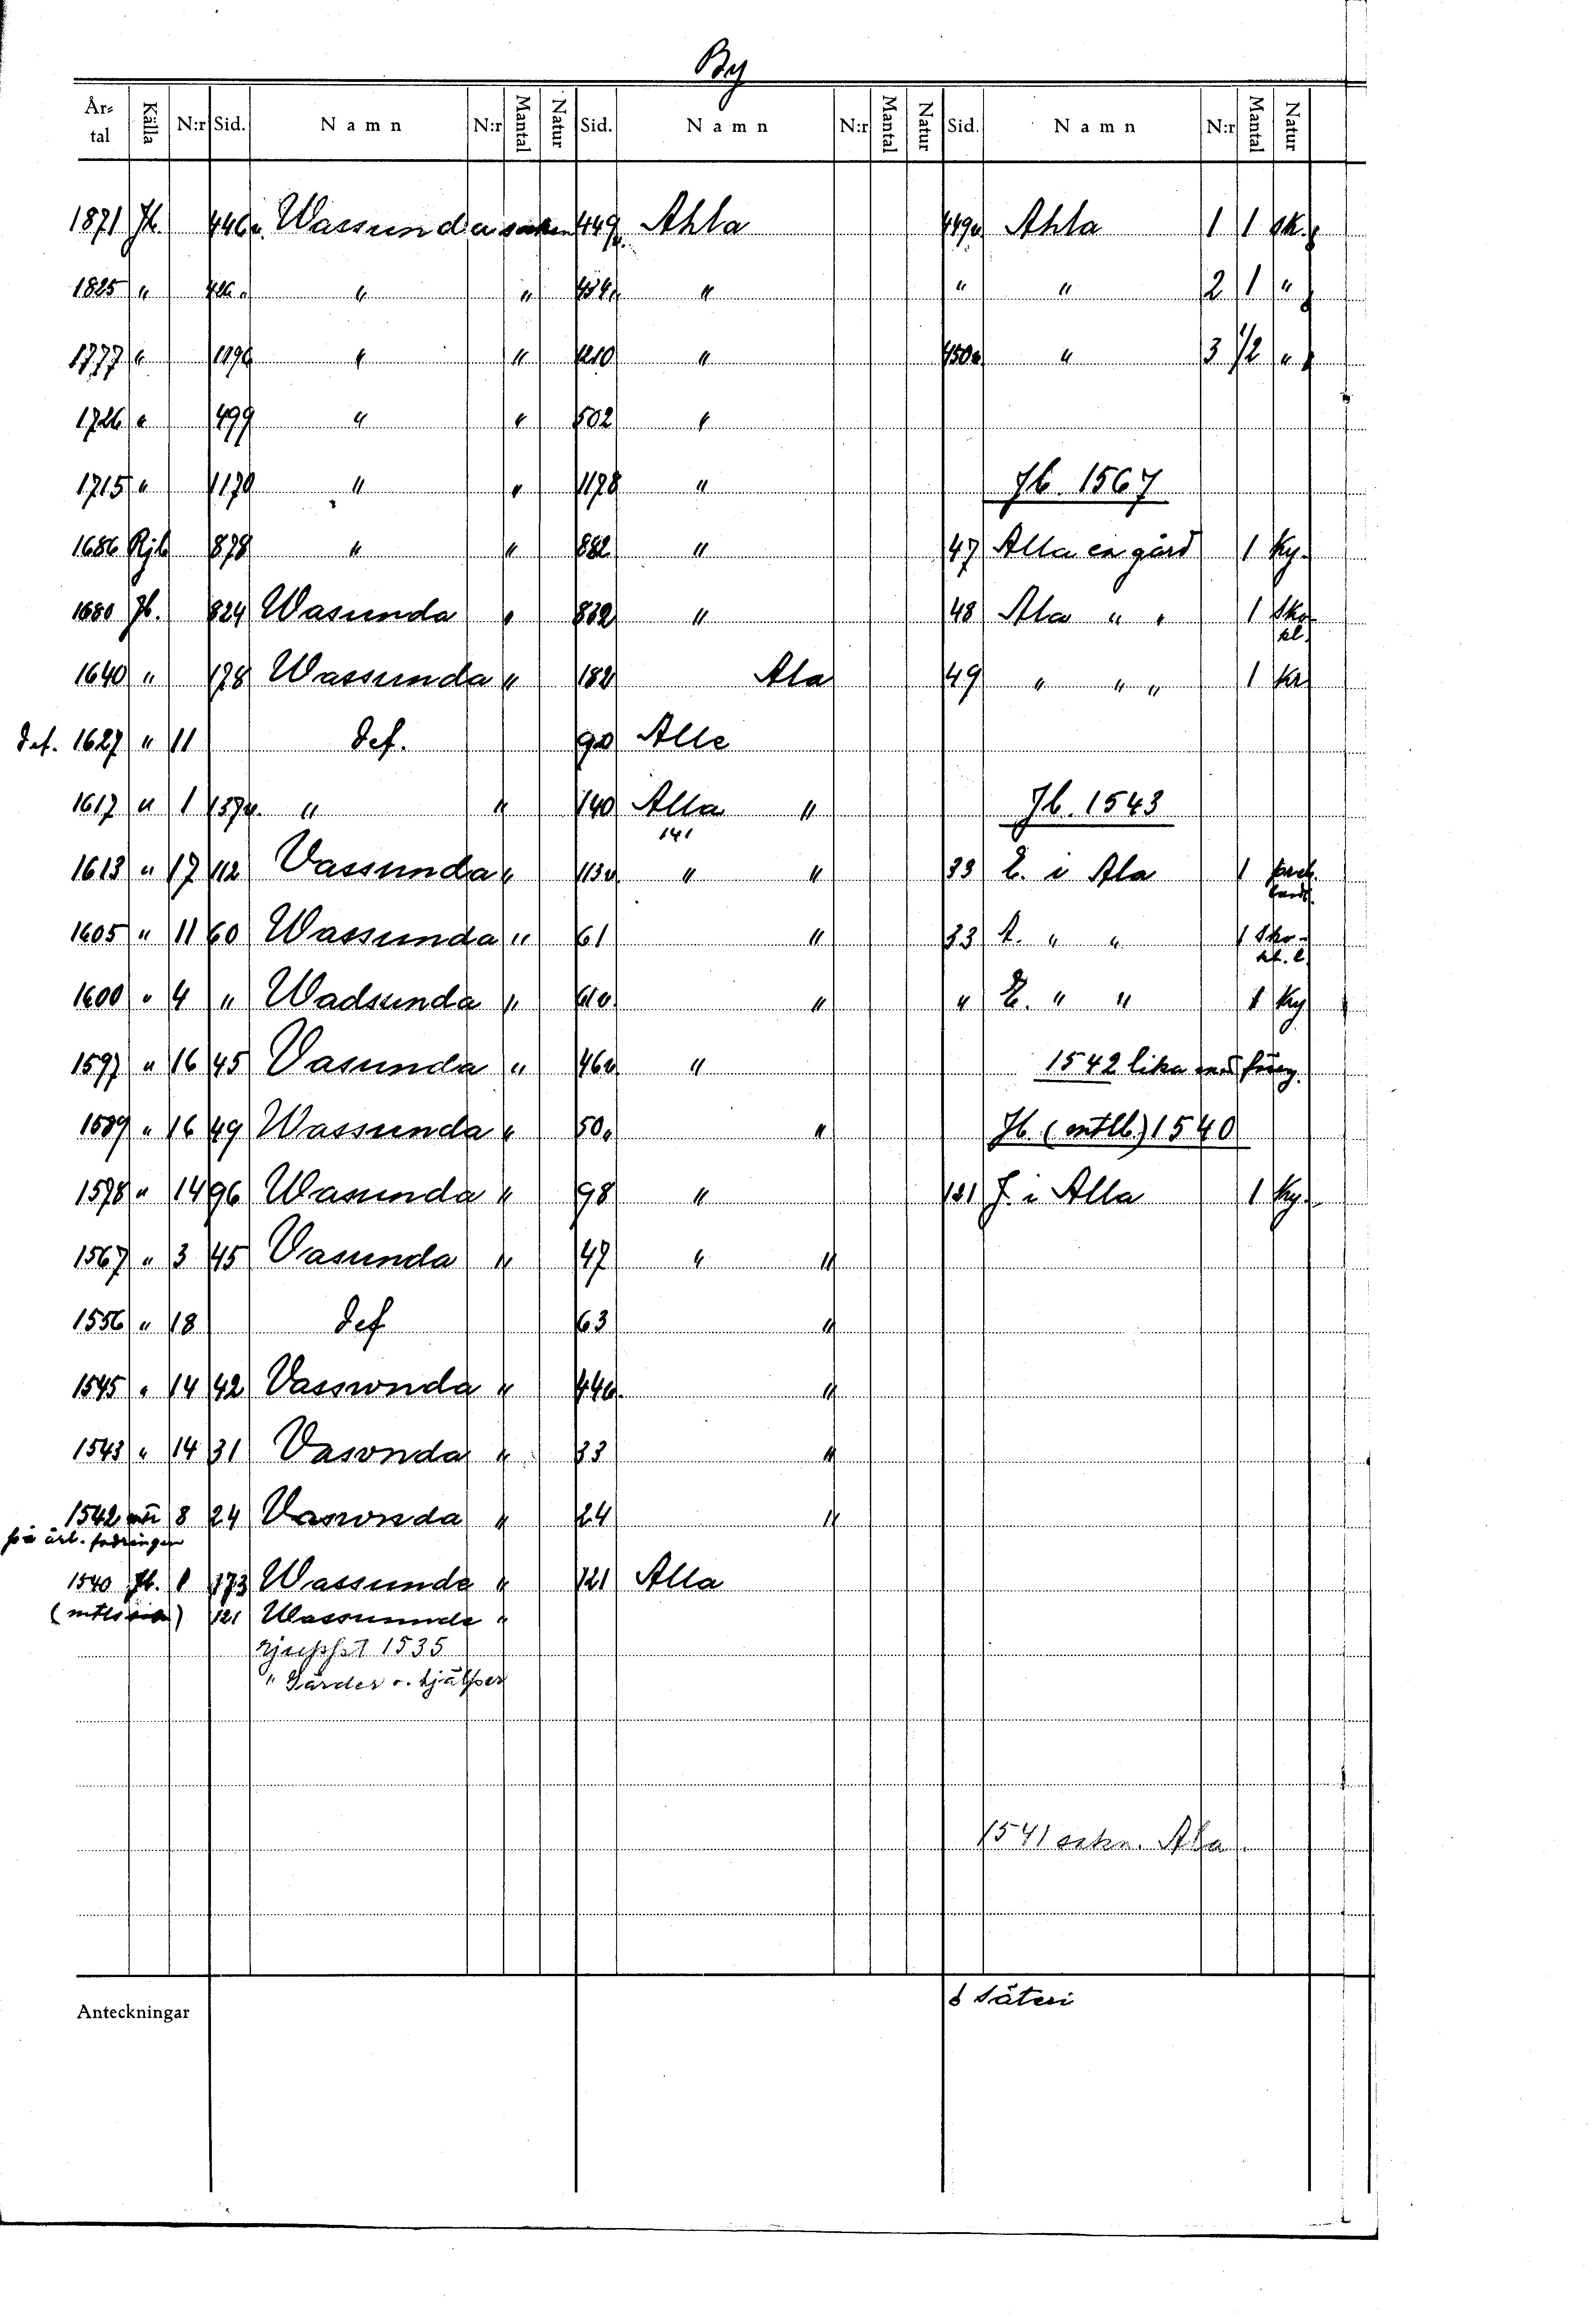 By
År-tal Källa N:r Sid. Namn N:r Mantal Natur Sid. Namn N:r Mantal Natur Sid. Namn N:r Mantal Natur
1871 Jb. 446v. Wassunda socken 449v. Ahla 449v Ahla 1 1 sk.
1825 " " " " " " 2 1 "
1777 " 1196 " " 1210 " 450v " 3 1/2 "
1726 " 499 " " 502 "
1715 " 1170 " " 1178 " Jb. 1567
1686 Rjb 878 " " 882 " 47 Alla en gård 1 Ky.
1680 Jb. 824 Wasunda " 832 " 48 Ala " " 1 Sko kl.
1640 " 178 Wassunda " 182 Ala 49 " " " 1 kr
def. 1627 " 11 def. 90 Alle
1617 " 1 137v. " " 140 Alla " Jb. 1543
141
1613 " 17 112 Vassunda " 113v. " " 33 E. i Ala 1
1605 " 11 60 Wassunda " 61 " 33 " " 1 Sko-kl.
1600 " 4 " Wadsunda " 61v. " " E. " " 1 Ky
1597 " 16 45 Vasunda " 46v " 1542 lika med föreg.
1589 " 16 49 Wassunda " 50v " Jb. (mtlb.) 1540
1578 " 14 96 Wasunda " 98 " 121 J. i Alla 1 Ky.
1567 " 3 45 Vasunda " 47 " "
1556 " 18 def 63 "
1545 " 14 42 Vasswnda " 44v. "
1543 " 14 31 Vasvnda " 33 "
1542 8 24 Vaswnda " 24 "
1540 Jb. 1 173 Wassunde " 121 Alla
121 Wassunnde "
1535
" Gärder o. hjälper
1541 sakn. Ala.
Anteckningar
säteri